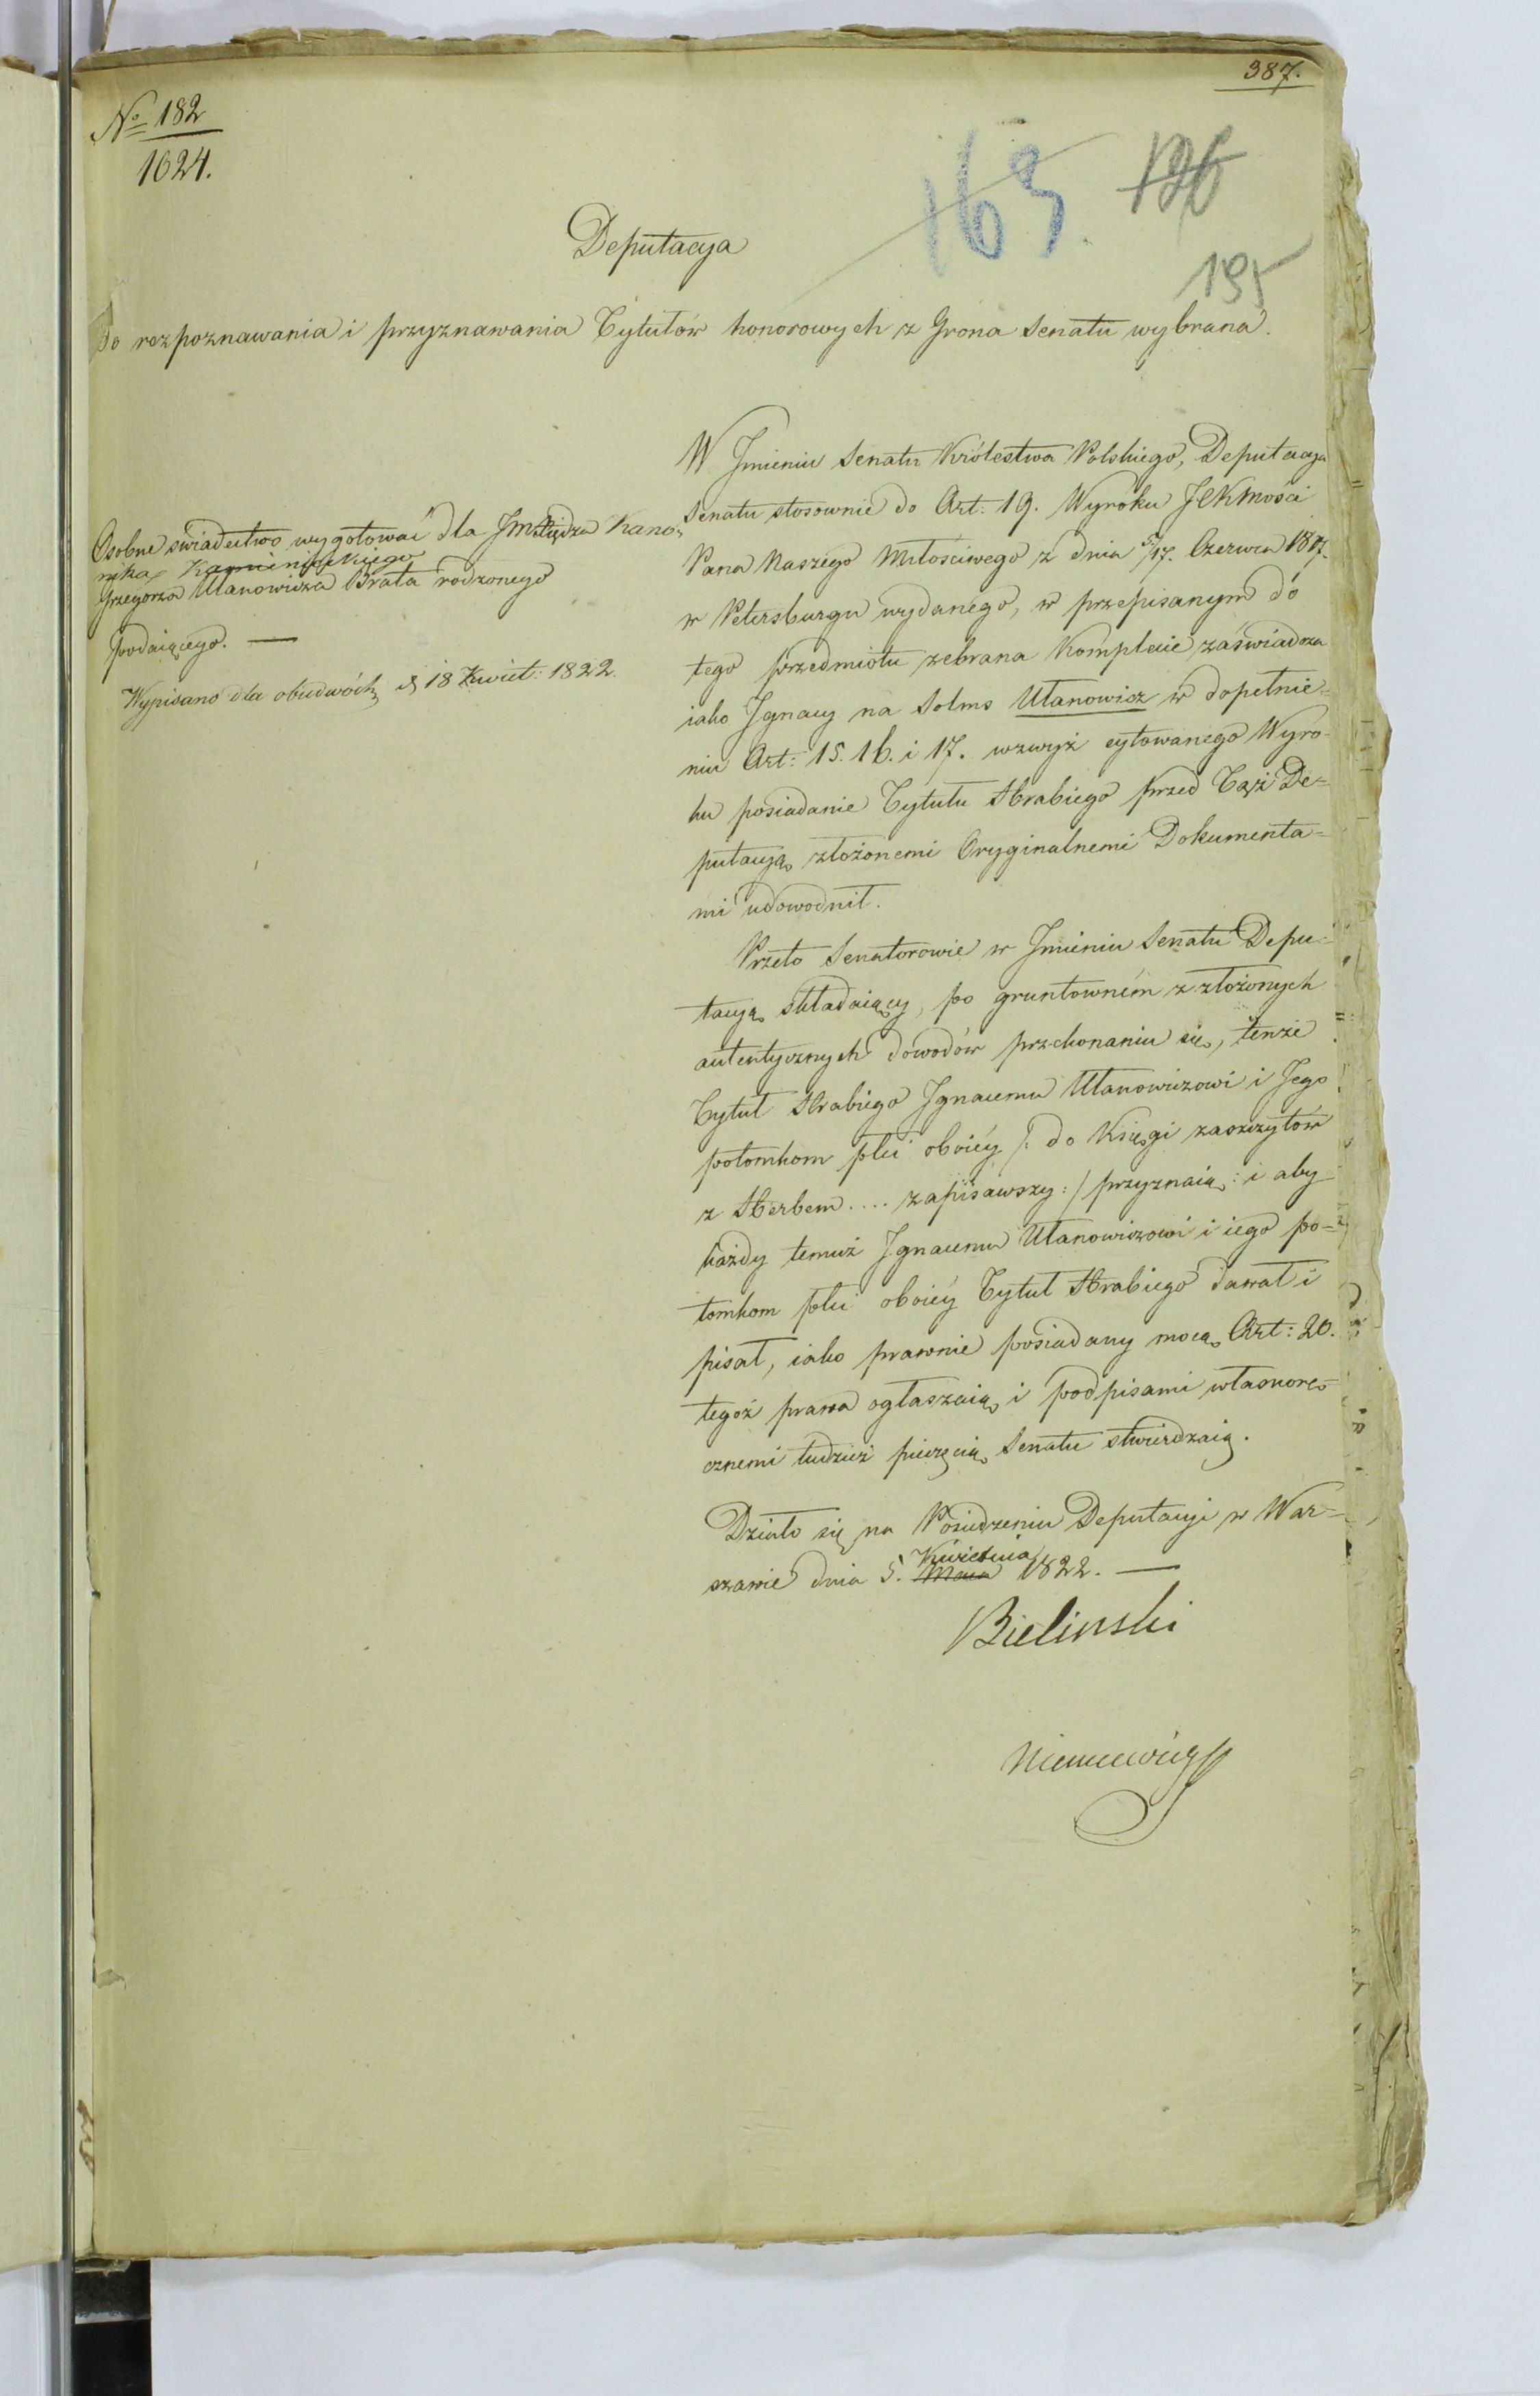 387.
No 182
1624.
163
126
195
Deputacya
Do rozpoznawania i przyznawania Tytułów honorowych z Grona Senatu wybrana.
Osobne swiadectwo wygotować dla Jm Xiędza Kano-
nika Kamieniskiego
Grzegorza Ulanowicza Brata rodzonego
podaiącego. —
Wypisano dla obudwóch d 18 Kwiet: 1822.
W Jmieniu Senatu Królestwa Polskiego, Deputacya
Senatu stosownie do Art: 19. Wyroku JCKMości
Pana Naszego Miłościwego z dnia 5/17. Czerwca 1817.
w Petersburgu wydanego, w przepisanym do
tego przedmiotu zebrana Komplecie zaświadcza
iako Jgnacy na Solms Ułanowicz w dopełnie-
niu Art: 15. 16. i 17. wzwyż cytowanego Wyro-
ku posiadanie Tytułu Hrabiego przed Tąż De-
putacyą złożonemi Oryginalnemi Dokumenta-
mi udowodnił.
Przeto Senatorowie w Jmieniu Senatu Depu-
tacyą składaiący, po gruntowném z złożonych
autentycznych dowodów przekonaniu się, tenże
Tytuł Hrabiego Jgnacemu Ułanowiczowi i Jego
potomkom płci oboiéy /: do Księgi zaszczytów
z Herbem .... zapisawszy :/ przyznaią: i aby
każdy temuż Jgnacemu Ułanowiczowi i iego po-
tomkom płci oboiéy Tytuł Hrabiego dawał i
pisał, iako prawnie posiadany mocą Art: 20.
tegoż prawa ogłaszaią i podpisami własnorę-
cznemi tudzież pieczęcią Senatu stwierdzaią.
Działo się na Posiedzeniu Deputacyi w War-
szawie dnia 5. Maia Kwietnia 1822. —
Bielinski
Niemcewicz